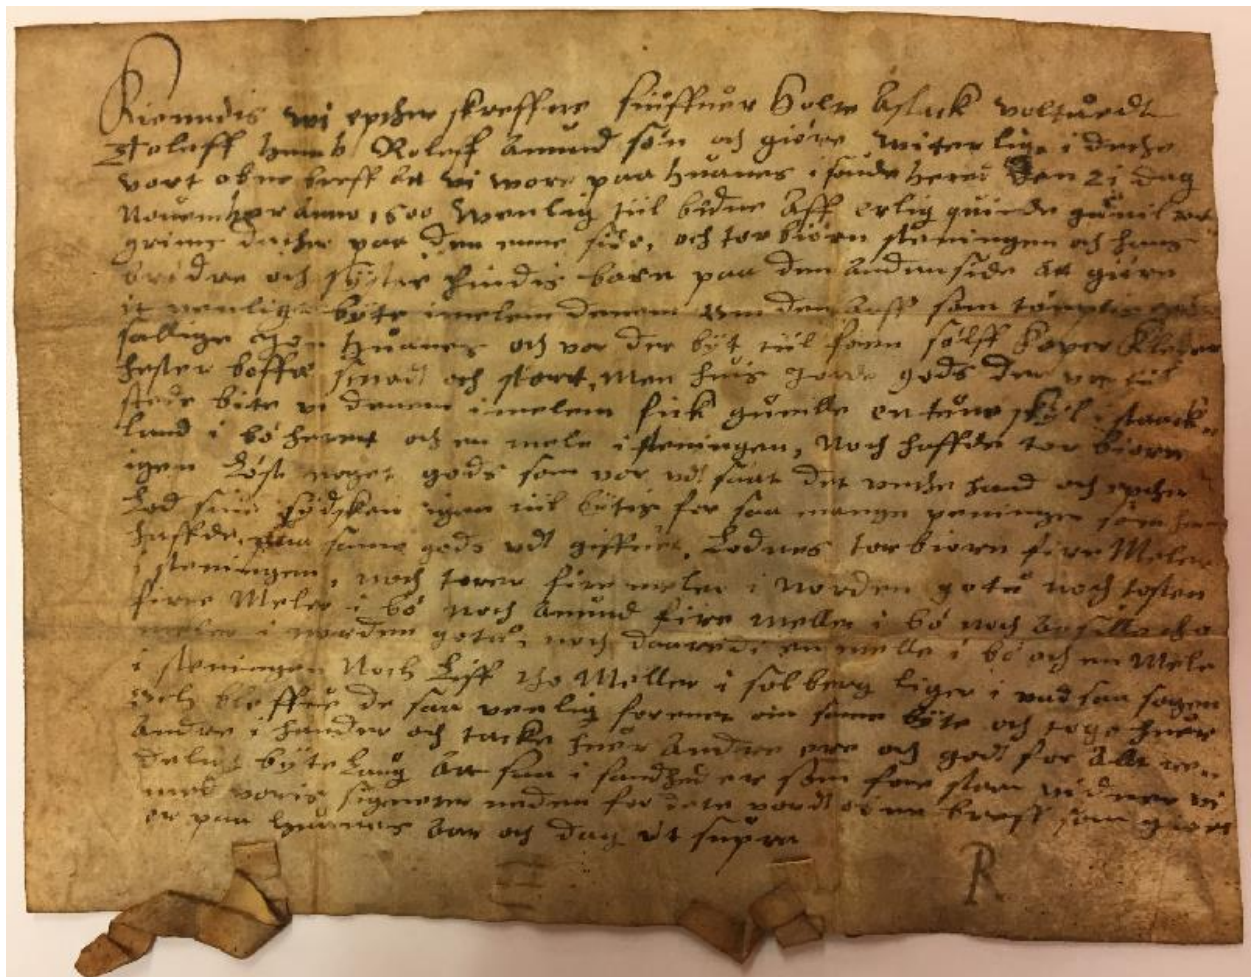 Kienndis wi epther skreffne siuffuer Holte Aslack voltuedt
Stoluff Roleff Amund søn och giøre witerligt i dethe
vort obne breff att vi wore paa huanes i saude heret den 21 dag
Nouember anno 1600 wenlig till bedne aff erlig quinde gunil
grims dother paa den enne side, och torbiørn steningen och hans
brødre och syster hindis børn paa den anden side att giøre
it venligt bÿte imelem denem om den arff som
sallige huanes och vor der bÿt till forn sølff koper kleder
hester boffe smaat och stort, Men huis Jorde gods der
stede bÿte vi denem imelem fick gunille en tune skÿl i
land i bø heret och en mele i steningen, Noch haffde torbiørn
igen løst noget gods som vor vdt satt det vethe hand och epther
lod sine sødsken igen till bÿtis for saa mange peninge som han
haffde paa same gods vdt giffuet, lodnes torbiørn fire Meler
i steningen, noch torer fire meler i norden gotu noch tosten
fire Meler i bø noch Amund fire meller i bø noch
meler i norden gotu, noch daaredi en melle i bø och en Mele
i steningen Noch Liff tho Meller i solberg liger i
bleffue de saa venlig forenet om same bÿte och toge huer
Andre i hender och tacke huer Andre ere och godt for Alt
deligt bÿte laug Att saa i sandhed er som fore staar vidner vi
med voris signeter neden for dete vordt obne breff som giort
er paa huanes Aar och dag vt supra
R